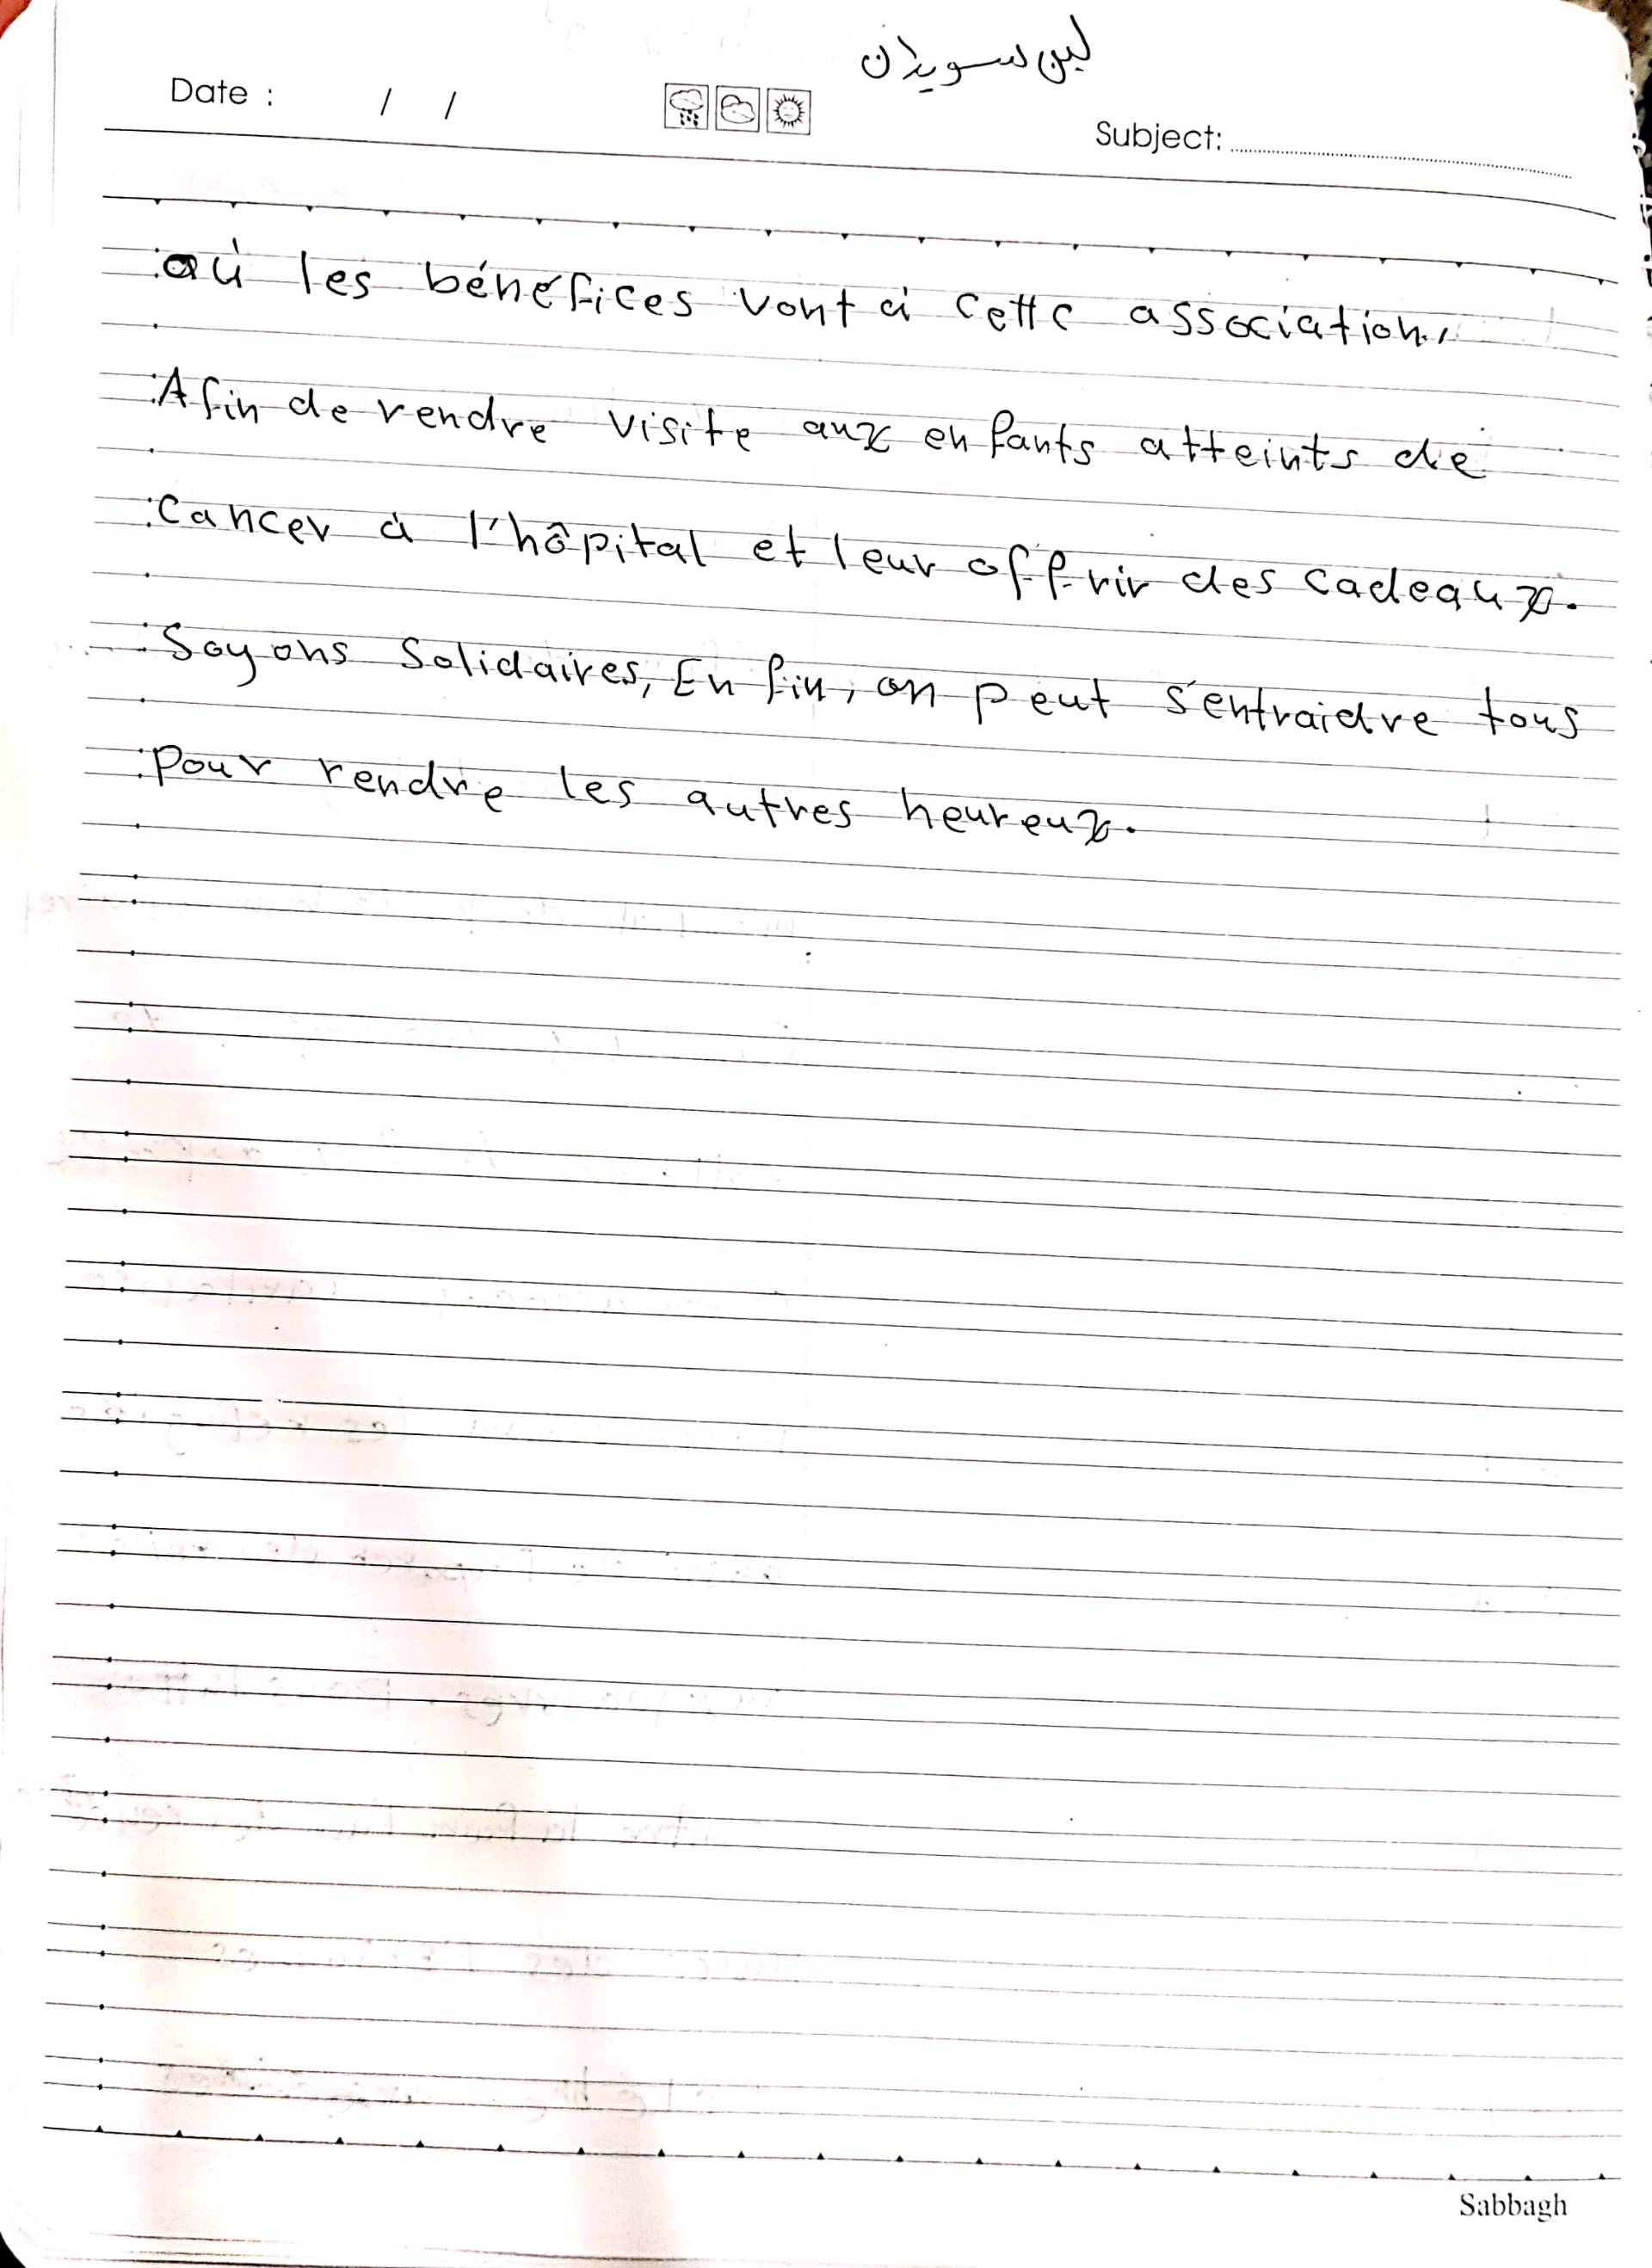 لين سويدان
Date : / /
Subject:
où les bénéfices vont à cette association.
Afin de rendre visite aux enfants atteints de
Cancer à l'hôpital et leur offrir des cadeaux.
Soyons Solidaires, En fin, on peut s'entraidre tous
pour rendre les autres heureux.
Sabbagh